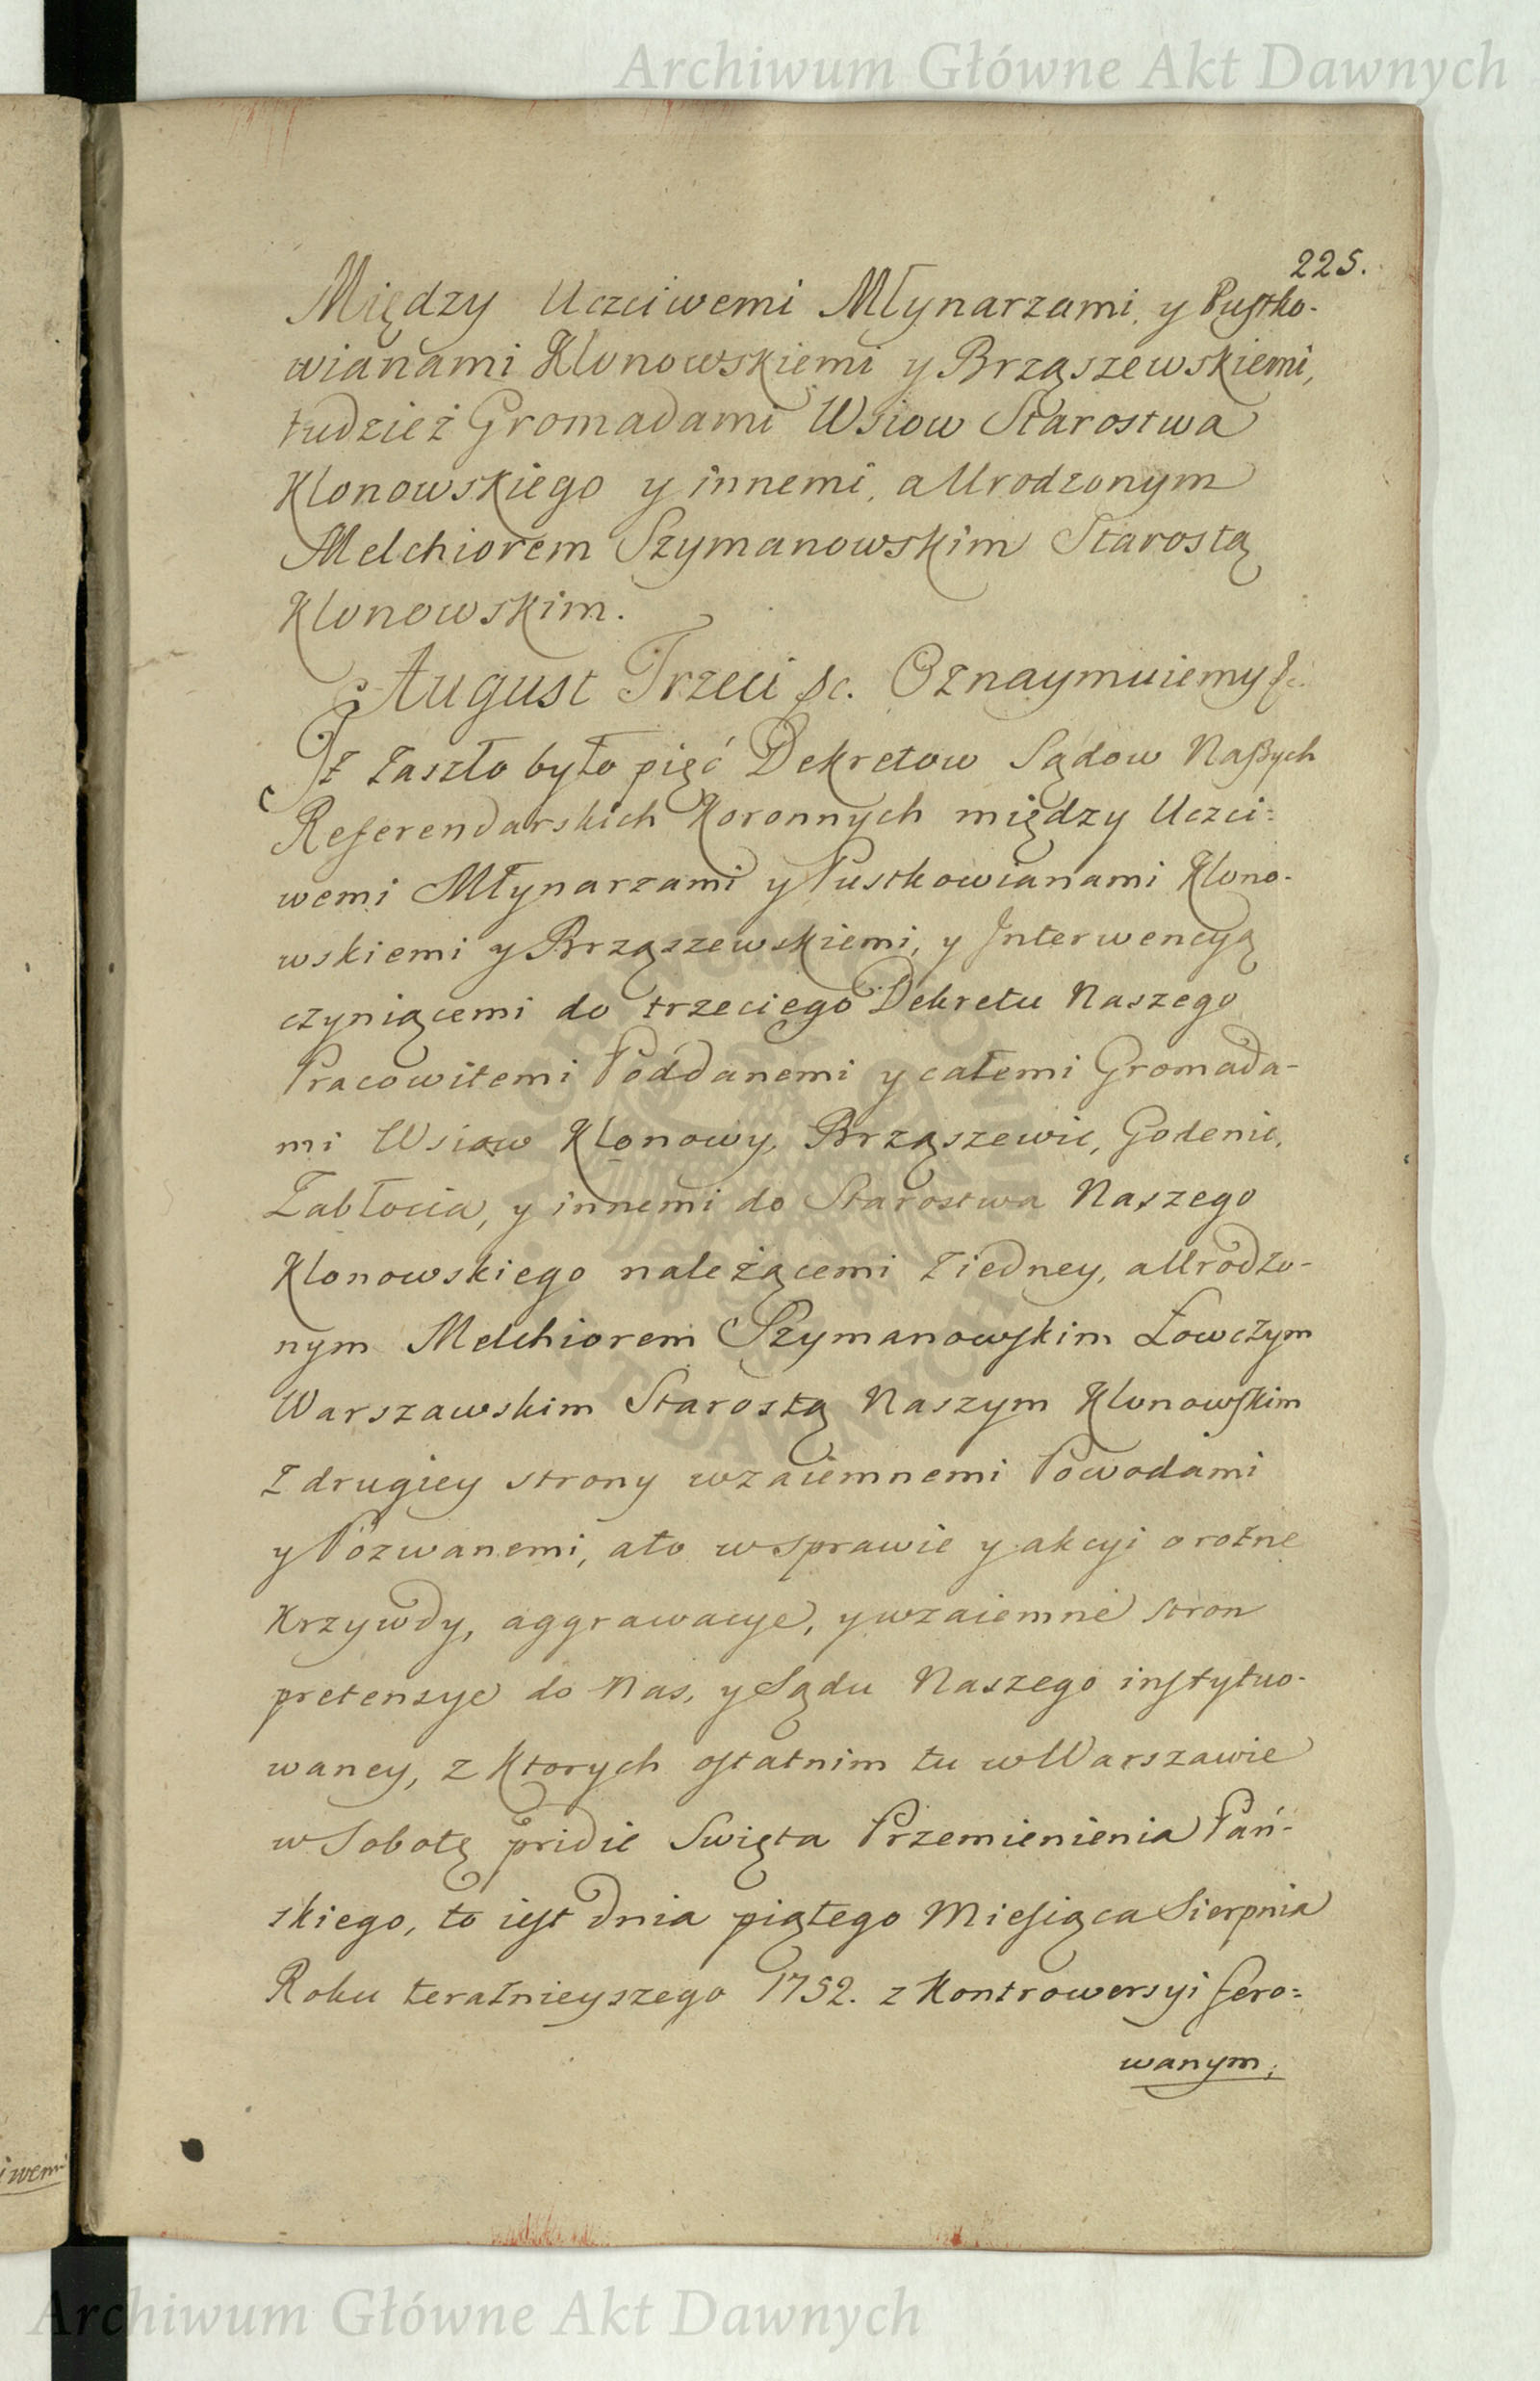 Archiwum Główne Akt Dawnych
225.
Między Uczciwemi Młynarzami, y Pustko-
wianami Klonowskiemi y Brząszewskiemi,
tudzież Gromadami Wsiow Starostwa
Klonowskiego y innemi, a Urodzonym
Melchiorem Szymanowskim Starostą
Klonowskim.
August Trzeci &c. Oznaymuiemy &c.
Iż zaszło było pięć Dekretow Sądow Naszych
Referendarskich Koronnych między Uczci=
wemi Młynarzami y Pustkowianami Klono-
wskiemi y Brząszewskiemi, y Interwencyą
czyniącemi do trzeciego Dekretu Naszego
Pracowitemi Poddanemi y całemi Gromada-
mi Wsiow Klonowy, Brząszewic, Godenic,
Zabłocia, y innemi do Starostwa Naszego
Klonowskiego należącemi z iedney, a Urodzo-
nym Melchiorem Szymanowskim Łowczym
Warszawskim Starostą Naszym Klonowskim
z drugiey strony wzaiemnemi Powodami
y Pozwanemi, ato w sprawie y akcyi o rożne
Krzywdy, aggrawacye, y wzaiemne stron
pretensye do Nas, y Sądu Naszego instytuo-
waney, z Ktorych ostatnim tu w Warszawie
w Sobotę pridie Swięta Przemienienia Pań-
skiego, to iest dnia piątego Miesiąca Sierpnia
Roku teraźnieyszego 1752. z Kontrowersyi fero=
wanym,
iwemi
Archiwum Główne Akt Dawnych